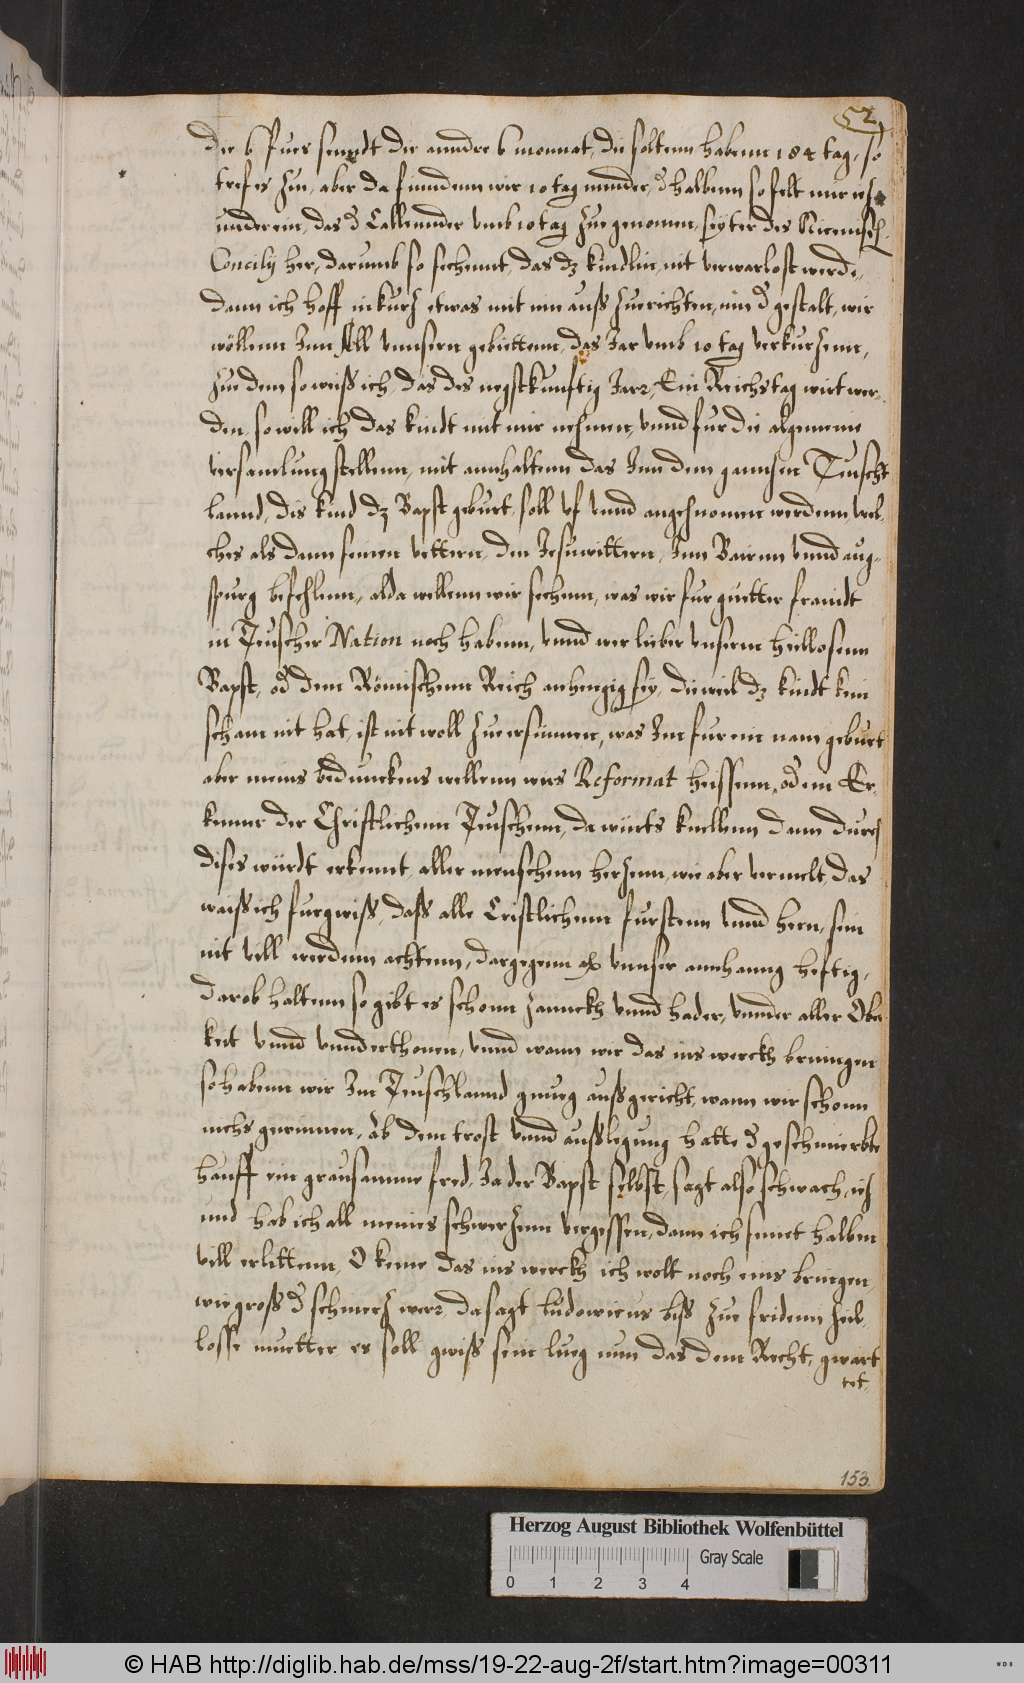 52
die 6 fues senndt die anndre 6 monnat, die soltenn habenn 184 tag, so
tref es Zue, aber da finndenn wir 10 tag minder, d halbenn so felt nur
underein, das d Callennder umb 10 tag Zuegenomen, seyter des Nicenisch
Concily her, darumb so sechennt, das dz kindlin nit verwarlost werde,
dann ich hoff in kurz etwas mit im auss Zuerichten, in d gestalt, wir
wöllenn Inn All unnsern gebiettenn, das Jar umb 10 tag verkurzenn,
Zue dem so weiss ich, das des negstkünftig Jarr, Ein Reichstag wirt wer-
den, so will ich das kindt mit mir nehmen, unnd fur die algemeine
versamlung stellenn, mit annhaltenn das Inn dem gannzen Teuscht
lannd, dis kind dz Bapst geburt, soll uf unnd angehnomen werdenn, wel-
ches als dann seinen vettern, den Jesuwittern, Inn Bairnn unnd aug-
spurg befehlenn, alda wellenn wir sechenn, was wir fur guette freindt
in Teuscher Nation noch habenn, unnd wer lieber unserm heillosenn
Bapst, od dem Römischenn Reich anhengig sey, dieweil dz kindt kein
scham nit hat, ist nit woll Zue ersinnen, was Im fur ein nam geburt
aber meins bedunckens wellenn wirs Reformat heissenn, od ein Er-
kenner der Christlichenn Teuschenn, da würts knellenn dann durch
dises würdt erkennt, aller menschenn herzenn, wie aber vermelt, das
waiss ich fur gwiss, dass alle Cristlichenn furstenn unnd hern, sein
nit vill werdenn achtenn, dargegenn unnser annhanng heftig,
darob haltenn so gibt es schonn Zannckh unnd hader, unnder aller Ober
keit unnd unnderthonen, unnd wann wir das ins werckh brinngen
so habenn wir Im Teuschlannd gnueg aussgericht, wann wir schonn
nichs gewinnen, Ab dem trost unnd ausslegung hatte d geschmierbte
hauff ein grausamme fred, Ja der Bapst selbst, sagt also schwach, ich
und hab ich all meines schmerzenn vergessen, dann ich seinet halben
vill erlittenn, O keme das ins werckh ich wolt noch eins bringen,
wie gross d schmerz wer, da sagt Ludowicus biss Zue fridenn heil-
losse muetter es soll gwiss sein lueg nun das dem Recht, gwart
tet
153.
Herzog August Bibliothek Wolfenbüttel
Gray Scale
0 1 2 3 4
© HAB http://diglib.hab.de/mss/19-22-aug-2f/start.htm?image=00311